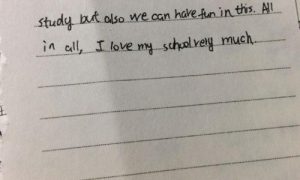 study but also we can have fun in this. All
in all, I love my school very much.